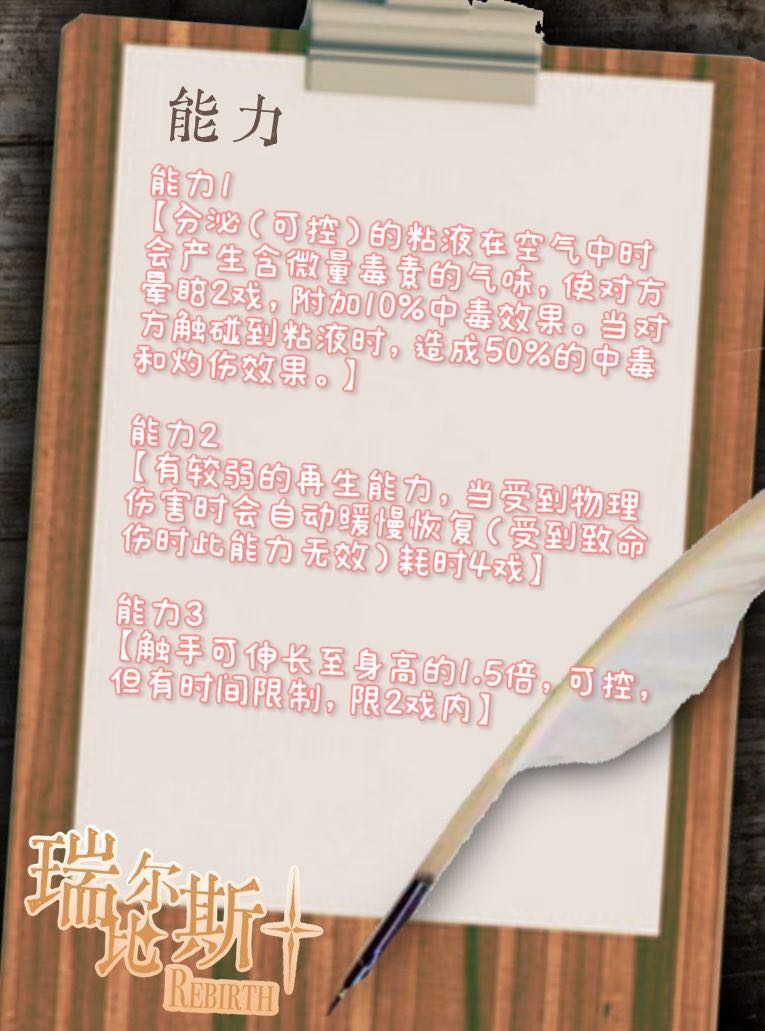 能力
能力1
【分泌（可控）的粘液在空气中时
会产生含微量毒素的气味，使对方
晕暗2戏，附加10%中毒效果。当对
方触碰到粘液时，造成50%的中毒
和灼伤效果。】
能力2
【有较弱的再生能力，当受到物理
伤害时会自动暖慢恢复（受到致命
伤时此能力无效）耗时4戏】
能力3
【触手可伸长至身高的1.5倍，可控，
但有时间限制，限2戏内】
瑞尔比斯
REBIRTH